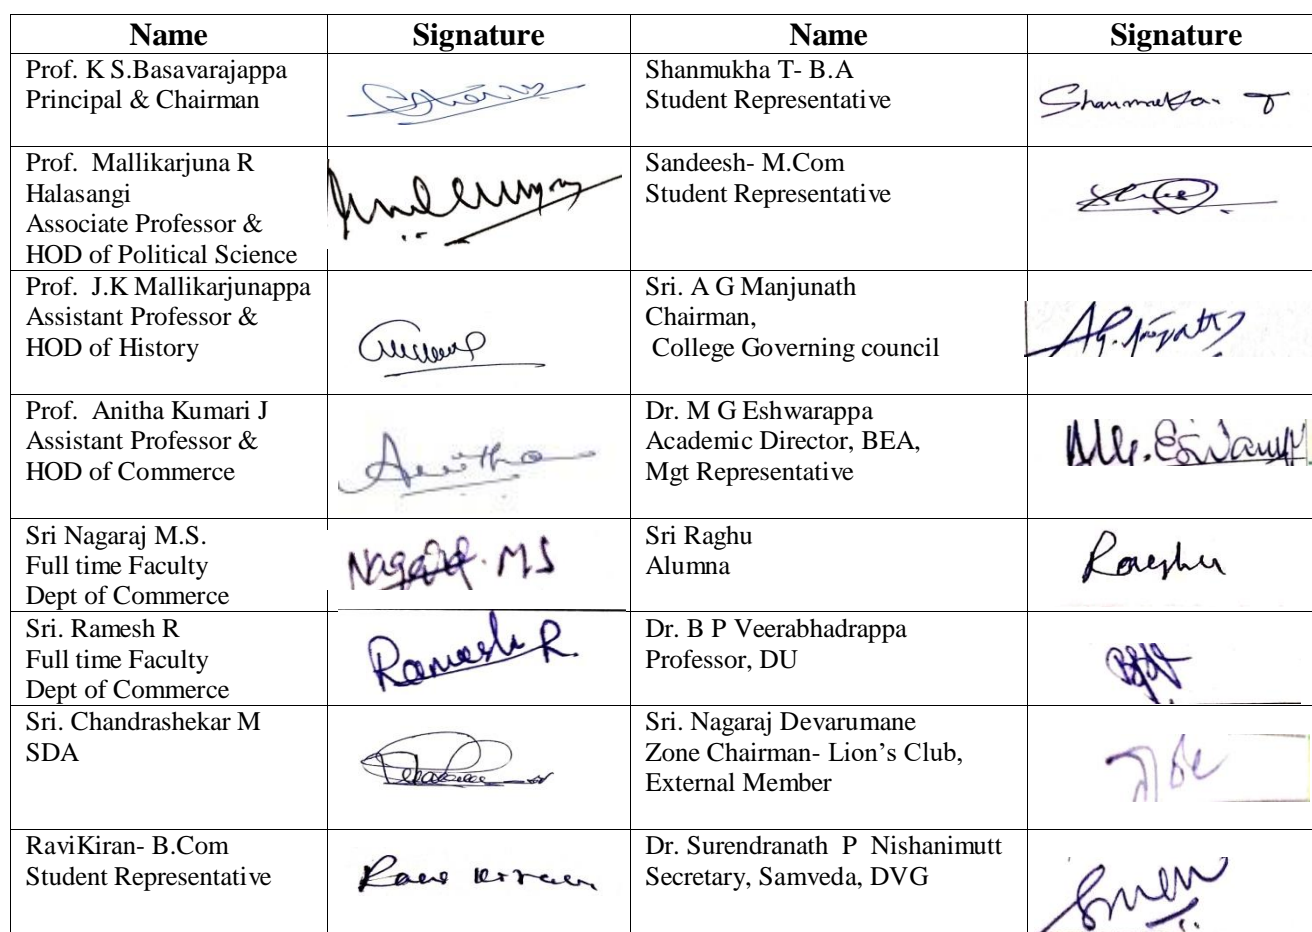 Name Signature Name Signature
Prof. K S.Basavarajappa
Principal & Chairman
Shanmukha T- B.A
Student Representative
Shanmukha. T
Prof. Mallikarjuna R
Halasangi
Associate Professor &
HOD of Political Science
Sandeesh- M.Com
Student Representative
Prof. J.K Mallikarjunappa
Assistant Professor &
HOD of History
Sri. A G Manjunath
Chairman,
College Governing council
Prof. Anitha Kumari J
Assistant Professor &
HOD of Commerce
Anitha
Dr. M G Eshwarappa
Academic Director, BEA,
Mgt Representative
Sri Nagaraj M.S.
Full time Faculty
Dept of Commerce
Nagaraj. M S
Sri Raghu
Alumna
Raghu
Sri. Ramesh R
Full time Faculty
Dept of Commerce
Ramesh R.
Dr. B P Veerabhadrappa
Professor, DU
Sri. Chandrashekar M
SDA
Sri. Nagaraj Devarumane
Zone Chairman- Lion’s Club,
External Member
RaviKiran- B.Com
Student Representative
Ravi Kiran
Dr. Surendranath P Nishanimutt
Secretary, Samveda, DVG